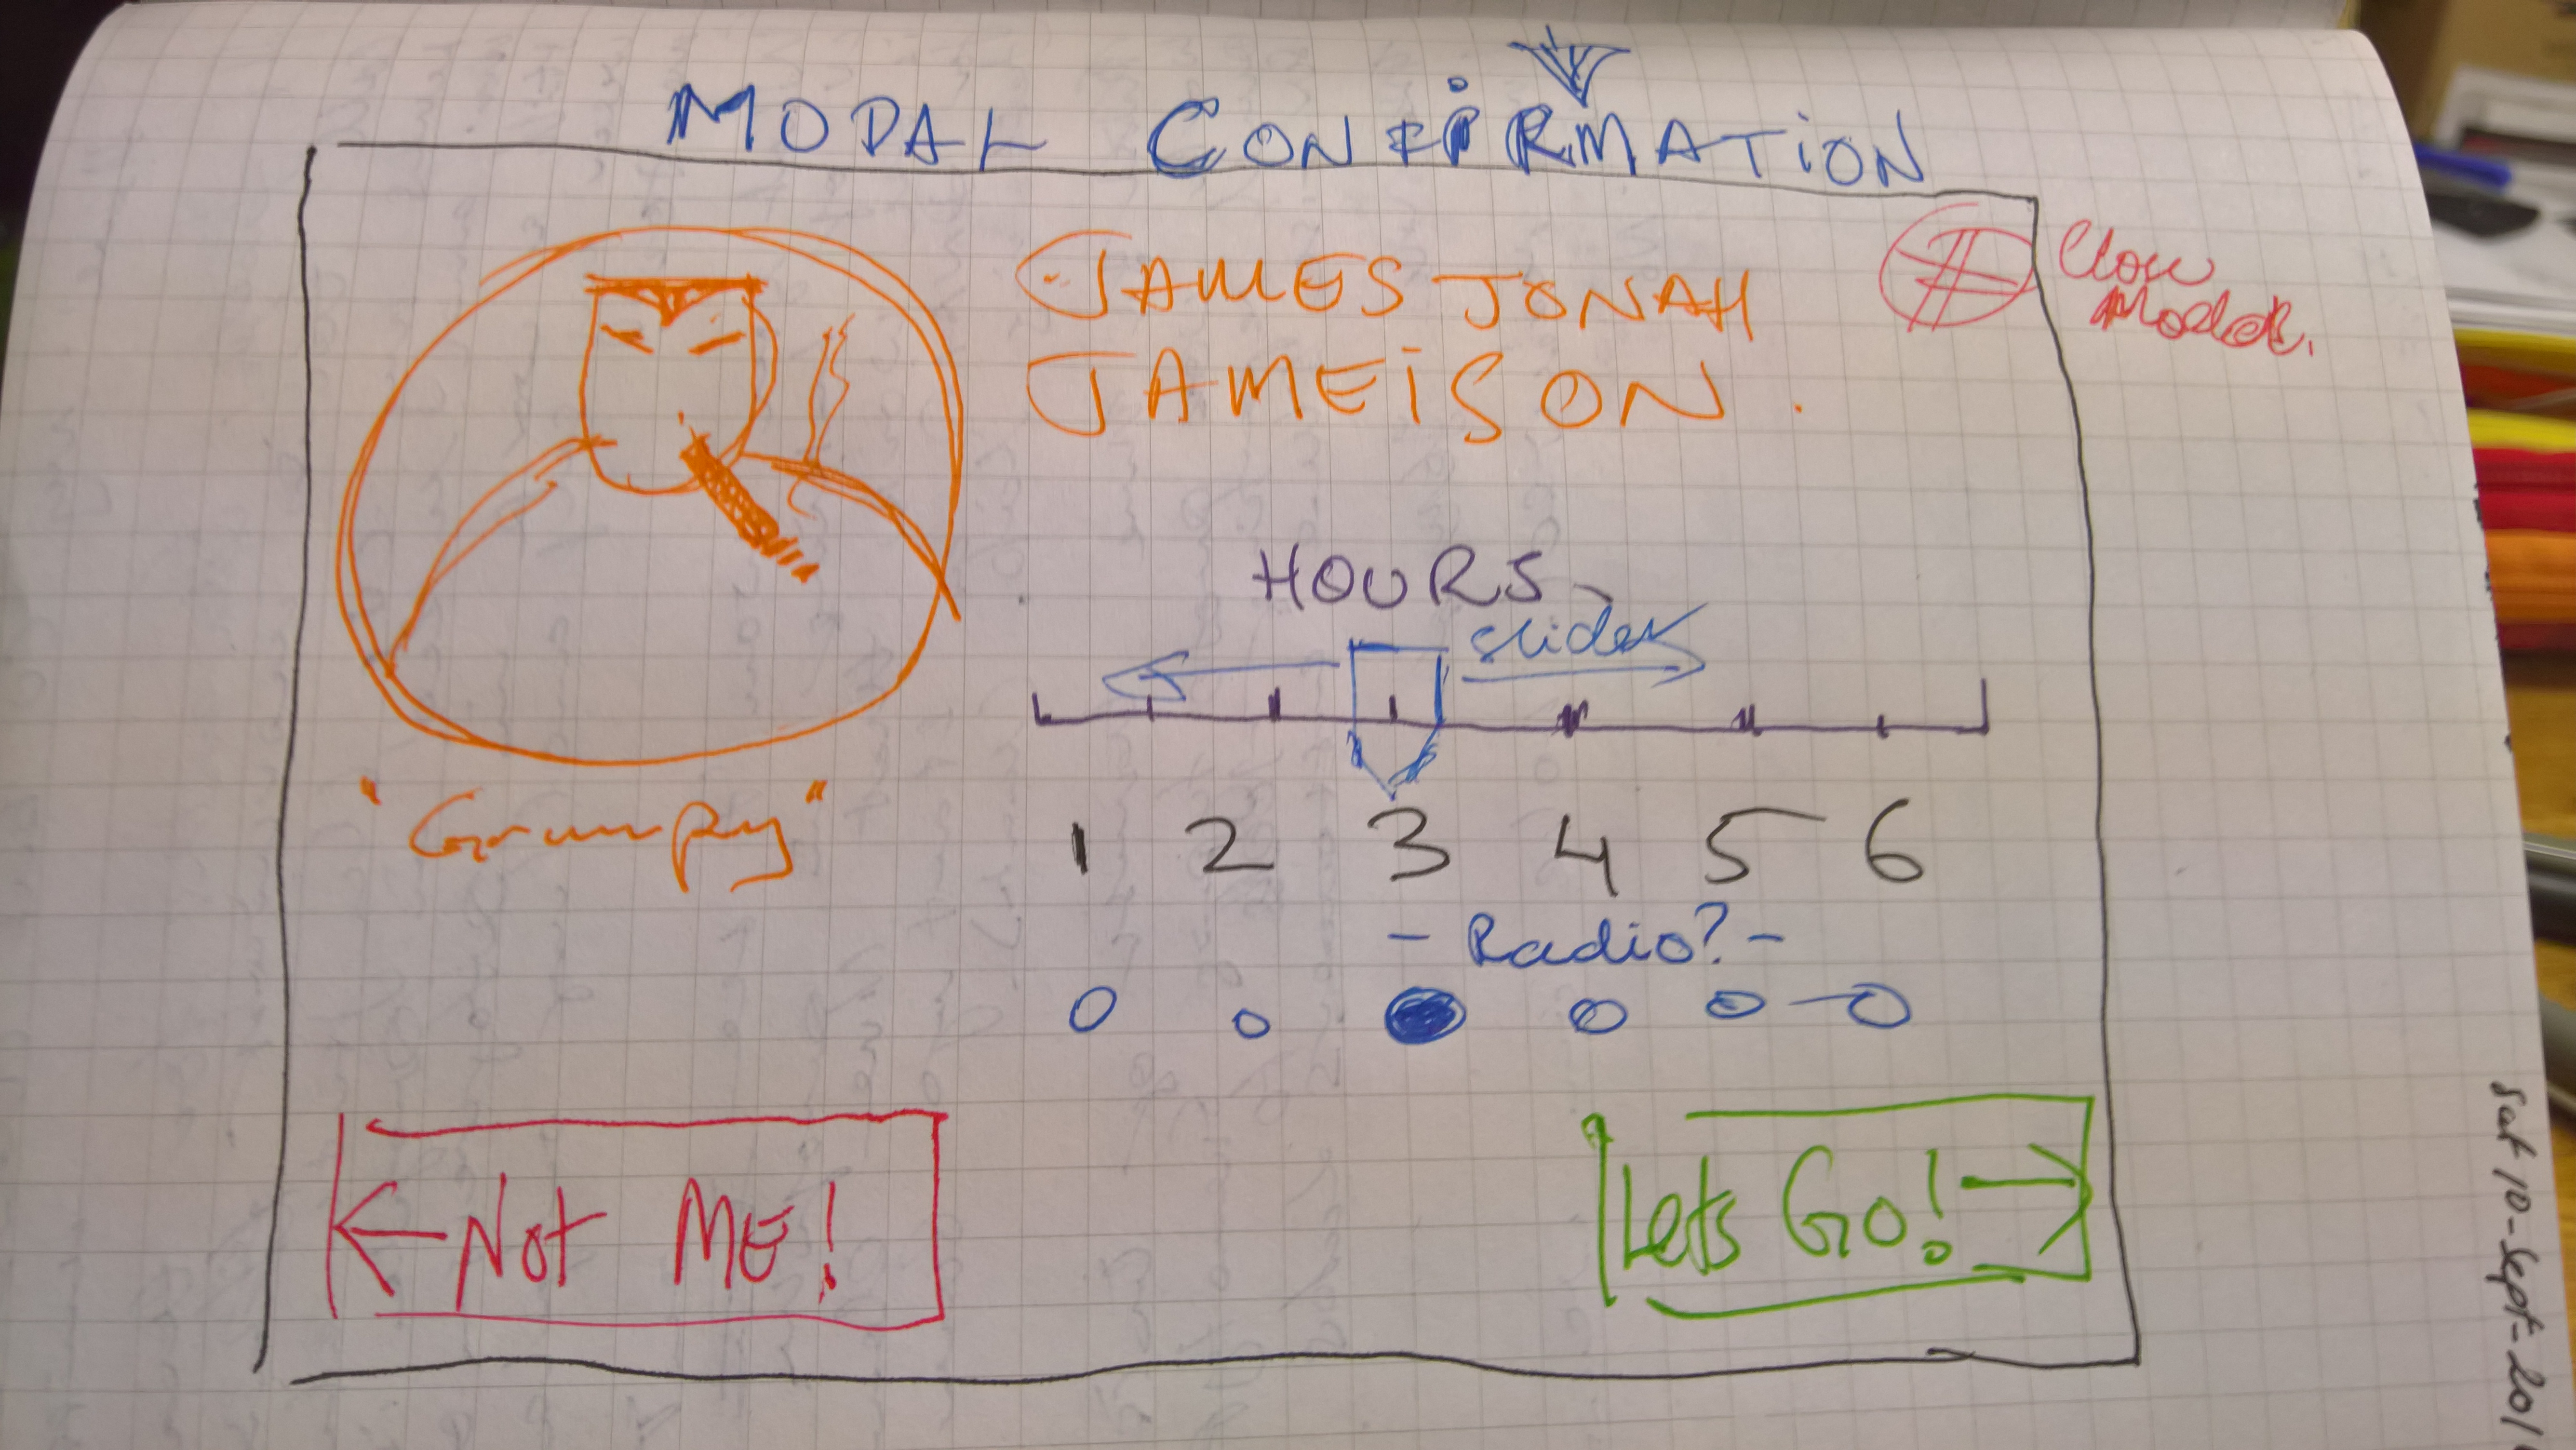 MODAL CONFIRMATION
JAMES JONAH
JAMEISON.
Close
Modal.
HOURS
slider
1 2 3 4 5 6
- Radio? -
"Grumpy"
← Not ME!
Lets Go! →
Sat 10-Sept-201